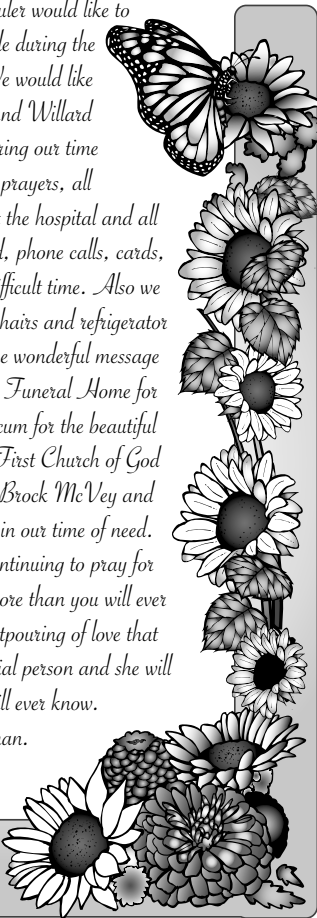 uler would like to
le during the
We would like
nd Willard
ring our time
prayers, all
t the hospital and all
d, phone calls, cards,
fficult time. Also we
hairs and refrigerator
e wonderful message
Funeral Home for
cum for the beautiful
First Church of God
Brock McVey and
in our time of need.
ntinuing to pray for
ore than you will ever
tpouring of love that
ial person and she will
ill ever know.
man.